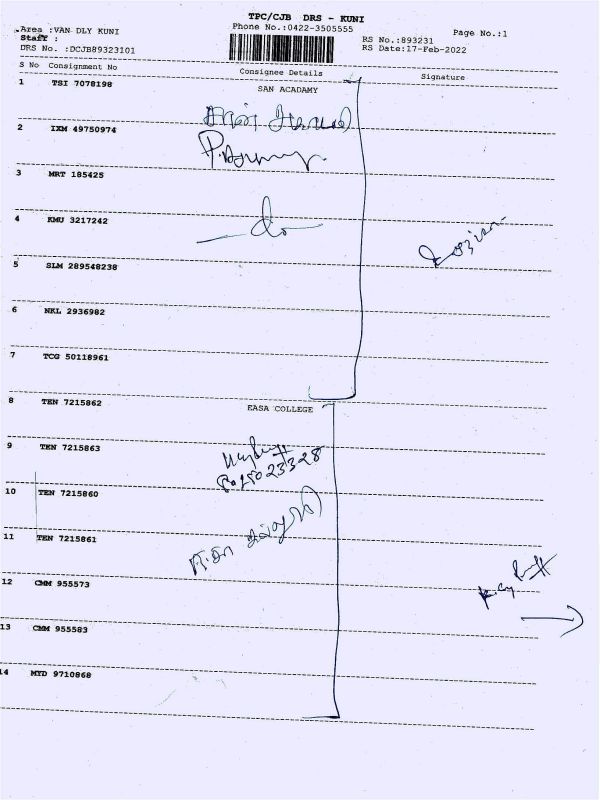 TPC/CJB DRS - KUNI
Area :VAN DLY KUNI
Phone No.:0422-3505555
Page No.:1
Staff :
RS No.:893231
DRS No. :DCJB89323101
RS Date:17-Feb-2022
S No Consignment No Consignee Details Signature
1 TSI 7078198 SAN ACADAMY
2 IXM 49750974
3 MRT 185425
4 KMU 3217242
do
5 SLM 289548238
6 NKL 2936982
7 TCG 50118961
8 TEN 7215862 EASA COLLEGE
9 TEN 7215863
10 TEN 7215860
11 TEN 7215861
12 CMM 955573
13 CMM 955583
14 MYD 9710868